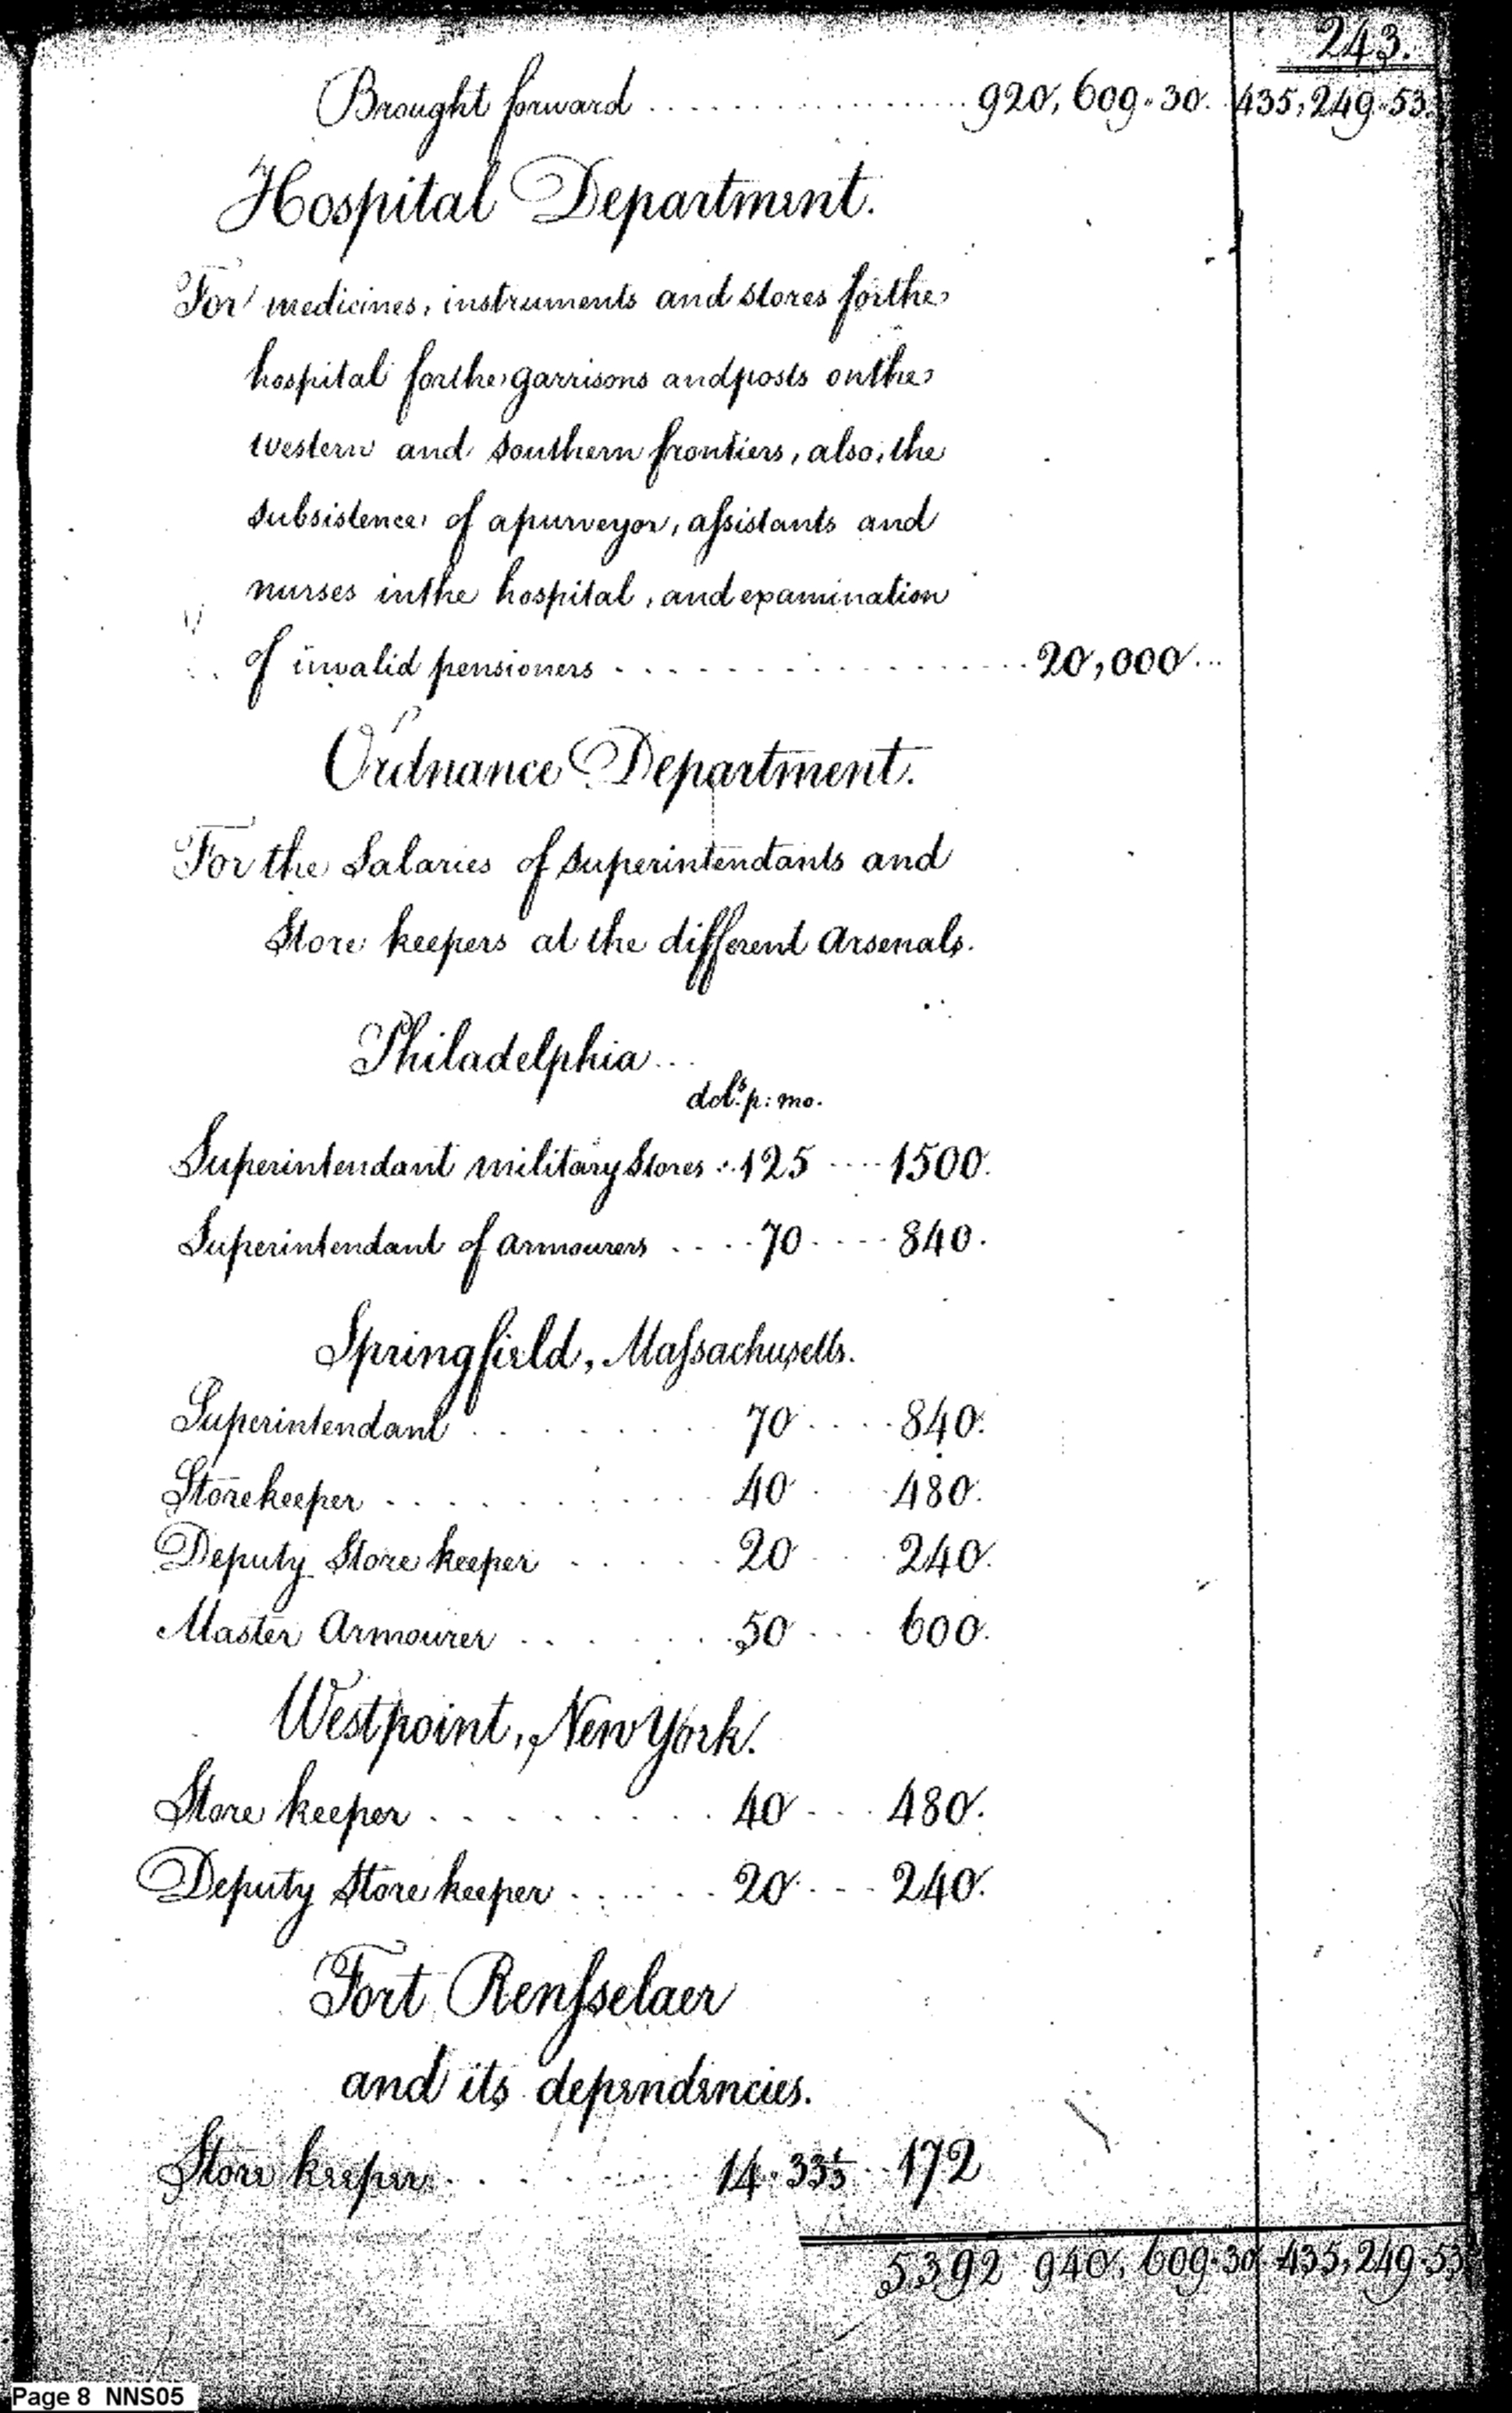 243.
Brought forward ................. 920,609.30. 435,249.53.
Hospital Department.
For medicines, instruments and stores for the
hospital for the garrisons and posts on the
western and southern frontiers, also, the
subsistence of a purveyor, assistants and
nurses in the hospital, and examination
of invalid pensioners ................. 20,000 ...
Ordnance Department.
For the Salaries of superintendants and
Store keepers at the different Arsenals.
Philadelphia...
dols. p: mo.
Superintendant military Stores .. 125 .... 1500.
Superintendant of armourers .... 70 .... 840.
Springfield, Massachusetts.
Superintendant ......... 70 .... 840.
Storekeeper ........... 40 .... 480.
Deputy Store keeper ...... 20 .... 240.
Master Armourer ....... 50 .... 600.
Westpoint, New York.
Store keeper ......... 40 .... 480.
Deputy Store keeper ...... 20 .... 240.
Fort Rensselaer
and its dependencies.
Store keeper ......... 14.33⅓ .. 172
5392 940,609.30. 435,249.53
Page 8 NNS05